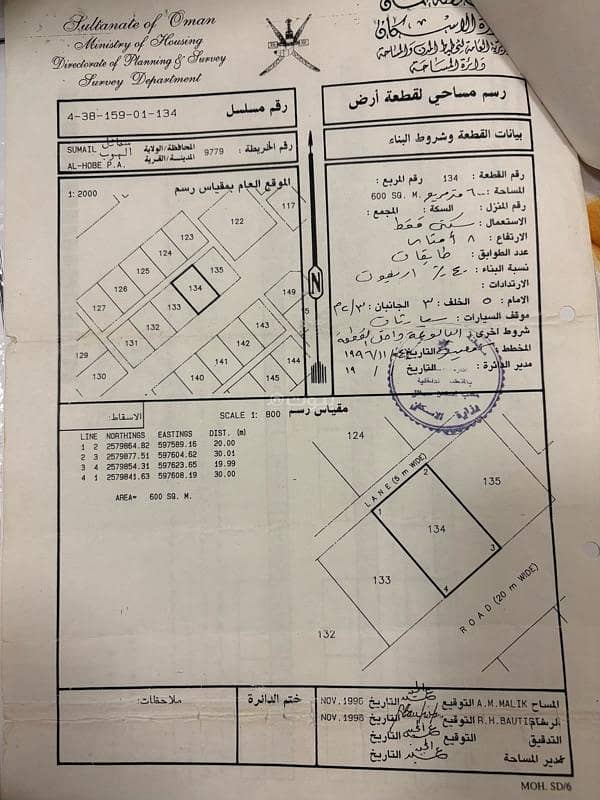 Sultanate of Oman
Ministry of Housing
Directorate of Planning & Survey
Survey Department
دائرة المساحة
4-38-159-01-134
رقم مسلسل
SUMAIL سمائل
المحافظة/الولاية
AL-HOBE P.A. الهوب
المدينة/القرية
رقم الخريطة : 9779
رسم مساحي لقطعة أرض
بيانات القطعة وشروط البناء
رقم القطعة : 134 رقم المربع :
المساحة : ٦٠٠ متر مربع
600 SQ. M.
رقم المنزل : السكة : المجمع :
الاستعمال : سكني فقط
الارتفاع : ٨ أمتار
عدد الطوابق : طابقان
نسبة البناء : ٤٠٪ أربعون
الارتدادات :
الامام : ٥ الخلف : ٣ الجانبان : ٢/٣م
موقف السيارات : سيارتان
شروط اخرى : البالوعة داخل القطعة
المخطط : التاريخ
مدير الدائرة : التاريخ / / ١٩
وزارة الاسكان
الموقع العام بمقياس رسم
1: 2000
117
122
123
124
125
126
127
135
134
133
132
131
130
129
149
143
142
141
140
144
145
N
مقياس رسم SCALE 1: 800
الاسقاط:
LINE NORTHINGS EASTINGS DIST. (m)
1 2 2579864.82 597589.16 20.00
2 3 2579877.51 597604.62 30.01
3 4 2579854.31 597623.65 19.99
4 1 2579841.63 597608.19 30.00
AREA= 600 SQ. M.
124
LANE (6 m WIDE)
135
1
2
134
3
4
133
132
ROAD (20 m WIDE)
ملاحظات:
ختم الدائرة
المساح A.M.MALIK التوقيع التاريخ NOV.1996
الرسام R.H.BAUTISTA التوقيع التاريخ NOV.1996
التدقيق التوقيع التاريخ
مدير المساحة التاريخ
MOH. SD/6